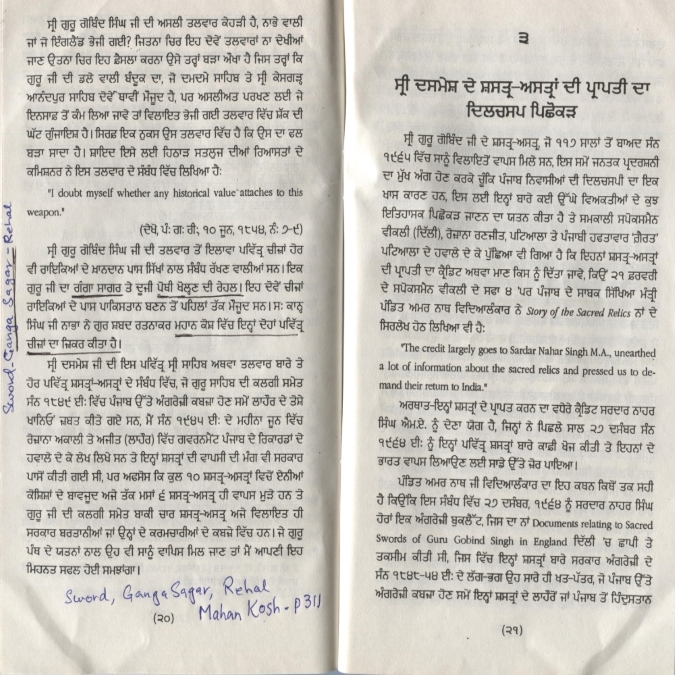 ਸ੍ਰੀ ਗੁਰੂ ਗੋਬਿੰਦ ਸਿੰਘ ਜੀ ਦੀ ਅਸਲੀ ਤਲਵਾਰ ਕੇਹੜੀ ਹੈ, ਨਾਭੇ ਵਾਲੀ
ਜਾਂ ਜੋ ਇੰਗਲੈਂਡ ਭੇਜੀ ਗਈ? ਜਿਤਨਾ ਚਿਰ ਇਹ ਦੋਵੇਂ ਤਲਵਾਰਾਂ ਨਾ ਦੇਖੀਆਂ
ਜਾਣ ਉਤਨਾ ਚਿਰ ਇਹ ਫ਼ੈਸਲਾ ਕਰਨਾ ਉਸੇ ਤਰ੍ਹਾਂ ਬੜਾ ਔਖਾ ਹੈ ਜਿਸ ਤਰਾਂ ਕਿ
ਗੁਰੂ ਜੀ ਦੀ ਡਲੇ ਵਾਲੀ ਬੰਦੂਕ ਦਾ, ਜੋ ਦਮਦਮੇ ਸਾਹਿਬ ਤੇ ਸ੍ਰੀ ਕੇਸਗੜ੍ਹ
ਆਨੰਦਪੁਰ ਸਾਹਿਬ ਦੋਵੇਂ ਥਾਵੀਂ ਮੌਜੂਦ ਹੈ, ਪਰ ਅਸਲੀਅਤ ਪਰਖਣ ਲਈ ਜੇ
ਇਨਸਾਫ਼ ਤੋਂ ਕੰਮ ਲਿਆ ਜਾਵੇ ਤਾਂ ਵਿਲਾਇਤ ਭੇਜੀ ਗਈ ਤਲਵਾਰ ਵਿੱਚ ਸ਼ੱਕ ਦੀ
ਘੱਟ ਗੁੰਜਾਇਸ਼ ਹੈ। ਸਿਰਫ਼ ਇਕ ਨੁਕਸ ਉਸ ਤਲਵਾਰ ਵਿੱਚ ਹੈ ਕਿ ਉਸ ਦਾ ਫਲ
ਬੜਾ ਸਾਦਾ ਹੈ। ਸ਼ਾਇਦ ਇਸੇ ਲਈ ਹਿਠਾੜ ਸਤਲੁਜ ਦੀਆਂ ਰਿਆਸਤਾਂ ਦੇ
ਕਮਿਸ਼ਨਰ ਨੇ ਇਸ ਤਲਵਾਰ ਦੇ ਸੰਬੰਧ ਵਿੱਚ ਲਿਖਿਆ ਹੈ:
"I doubt myself whether any historical value attaches to this
weapon."
(ਦੇਖੋ, ਪੰ: ਗ: ਰੀ; ੧੦ ਜੂਨ, ੧੮੫੪, ਨੰ: ੭-੯)
ਸ੍ਰੀ ਗੁਰੂ ਗੋਬਿੰਦ ਸਿੰਘ ਜੀ ਦੀ ਤਲਵਾਰ ਤੋਂ ਇਲਾਵਾ ਪਵਿੱਤ੍ਰ ਚੀਜ਼ਾਂ ਹੋਰ
ਵੀ ਰਾਇਕਿਆਂ ਦੇ ਖ਼ਾਨਦਾਨ ਪਾਸ ਸਿੱਖਾਂ ਨਾਲ ਸੰਬੰਧ ਰੱਖਣ ਵਾਲੀਆਂ ਸਨ। ਇਕ
ਗੁਰੂ ਜੀ ਦਾ ਗੰਗਾ ਸਾਗਰ ਤੇ ਦੂਜੀ ਪੋਥੀ ਖੋਲ੍ਹਣ ਦੀ ਰੇਹਲ। ਇਹ ਦੋਵੇਂ ਚੀਜ਼ਾਂ
ਰਾਇਕਿਆਂ ਦੇ ਪਾਸ ਪਾਕਿਸਤਾਨ ਬਣਨ ਤੋਂ ਪਹਿਲਾਂ ਤੱਕ ਮੌਜੂਦ ਸਨ। ਸ: ਕਾਨ੍ਹ
ਸਿੰਘ ਜੀ ਨਾਭਾ ਨੇ ਗੁਰ ਸ਼ਬਦ ਰਤਨਾਕਰ ਮਹਾਨ ਕੋਸ਼ ਵਿੱਚ ਇਨ੍ਹਾਂ ਦੋਹਾਂ ਪਵਿੱਤ੍ਰ
ਚੀਜ਼ਾਂ ਦਾ ਜ਼ਿਕਰ ਕੀਤਾ ਹੈ।
ਸ੍ਰੀ ਦਸਮੇਸ਼ ਜੀ ਦੀ ਇਸ ਪਵਿੱਤ੍ਰ ਸ੍ਰੀ ਸਾਹਿਬ ਅਥਵਾ ਤਲਵਾਰ ਬਾਰੇ ਤੇ
ਹੋਰ ਪਵਿੱਤ੍ਰ ਸ਼ਸਤ੍ਰ-ਅਸਤ੍ਰਾਂ ਦੇ ਸੰਬੰਧ ਵਿੱਚ, ਜੋ ਗੁਰੂ ਸਾਹਿਬ ਦੀ ਕਲਗੀ ਸਮੇਤ
ਸੰਨ ੧੮੪੯ ਈ: ਵਿੱਚ ਪੰਜਾਬ ਉੱਤੇ ਅੰਗਰੇਜ਼ੀ ਕਬਜ਼ਾ ਹੋਣ ਸਮੇਂ ਲਾਹੌਰ ਦੇ ਤੋਸ਼ੇ
ਖਾਨਿਓਂ ਜ਼ਬਤ ਕੀਤੇ ਗਏ ਸਨ, ਮੈਂ ਸੰਨ ੧੯੪੫ ਈ: ਦੇ ਮਹੀਨਾ ਜੂਨ ਵਿੱਚ
ਰੋਜ਼ਾਨਾ ਅਕਾਲੀ ਤੇ ਅਜੀਤ (ਲਾਹੌਰ) ਵਿੱਚ ਗਵਰਨਮੈਂਟ ਪੰਜਾਬ ਦੇ ਰਿਕਾਰਡਾਂ ਦੇ
ਹਵਾਲੇ ਦੇ ਕੇ ਲੇਖ ਲਿਖੇ ਸਨ ਤੇ ਇਨ੍ਹਾਂ ਸ਼ਸਤ੍ਰਾਂ ਦੀ ਵਾਪਸੀ ਦੀ ਮੰਗ ਵੀ ਸਰਕਾਰ
ਪਾਸੋਂ ਕੀਤੀ ਗਈ ਸੀ, ਪਰ ਅਫਸੋਸ ਕਿ ਕੁਲ ੧੦ ਸ਼ਸਤ੍ਰ-ਅਸਤ੍ਰਾਂ ਵਿਚੋਂ ਏਨੀਆਂ
ਕੋਸ਼ਿਸ਼ਾਂ ਦੇ ਬਾਵਜੂਦ ਅਜੇ ਤੱਕ ਮਸਾਂ ੬ ਸ਼ਸਤ੍ਰ-ਅਸਤ੍ਰ ਹੀ ਵਾਪਸ ਮੁੜੇ ਹਨ ਤੇ
ਗੁਰੂ ਜੀ ਦੀ ਕਲਗੀ ਸਮੇਤ ਬਾਕੀ ਚਾਰ ਸ਼ਸਤ੍ਰ-ਅਸਤ੍ਰ ਅਜੇ ਵਿਲਾਇਤ ਹੀ
ਸਰਕਾਰ ਬਰਤਾਨੀਆਂ ਜਾਂ ਉਨ੍ਹਾਂ ਦੇ ਕਰਮਚਾਰੀਆਂ ਦੇ ਕਬਜ਼ੇ ਵਿੱਚ ਹਨ। ਜੇ ਗੁਰੂ
ਪੰਥ ਦੇ ਯਤਨਾਂ ਨਾਲ ਉਹ ਵੀ ਸਾਨੂੰ ਵਾਪਿਸ ਮਿਲ ਜਾਣ ਤਾਂ ਮੈਂ ਆਪਣੀ ਇਹ
ਮਿਹਨਤ ਸਫਲ ਹੋਈ ਸਮਝਾਂਗਾ।
Sword, Ganga Sagar, Rehal
Mahan Kosh - P311
(੨੦)
Sword-Ganga Sagar-Rehal
੩
ਸ੍ਰੀ ਦਸਮੇਸ਼ ਦੇ ਸ਼ਸਤ੍ਰ-ਅਸਤ੍ਰਾਂ ਦੀ ਪ੍ਰਾਪਤੀ ਦਾ
ਦਿਲਚਸਪ ਪਿਛੋਕੜ
ਸ੍ਰੀ ਗੁਰੂ ਗੋਬਿੰਦ ਜੀ ਦੇ ਸ਼ਸਤ੍ਰ-ਅਸਤ੍ਰ, ਜੋ ੧੧੭ ਸਾਲਾਂ ਤੋਂ ਬਾਅਦ ਸੰਨ
੧੯੬੫ ਵਿੱਚ ਸਾਨੂੰ ਵਿਲਾਇਤੋਂ ਵਾਪਸ ਮਿਲੇ ਸਨ, ਇਸ ਸਮੇਂ ਜਨਤਕ ਪ੍ਰਦਰਸ਼ਨੀ
ਦਾ ਮੁੱਖ ਅੰਗ ਹੋਣ ਕਰਕੇ ਚੂੰਕਿ ਪੰਜਾਬ ਨਿਵਾਸੀਆਂ ਦੀ ਦਿਲਚਸਪੀ ਦਾ ਇਕ
ਖਾਸ ਕਾਰਣ ਹਨ, ਇਸ ਲਈ ਇਨ੍ਹਾਂ ਬਾਰੇ ਕਈ ਉੱਘੇ ਵਿਅਕਤੀਆਂ ਦੇ ਕੁਝ
ਇਤਿਹਾਸਕ ਪਿਛੋਕੜ ਜਾਣਨ ਦਾ ਯਤਨ ਕੀਤਾ ਹੈ ਤੇ ਸਮਕਾਲੀ ਸਪੋਕਸਮੈਨ
ਵੀਕਲੀ (ਦਿੱਲੀ), ਰੋਜ਼ਾਨਾ ਰਣਜੀਤ, ਪਟਿਆਲਾ ਤੇ ਪੰਜਾਬੀ ਹਫਤਾਵਾਰ 'ਗ਼ੈਰਤ'
ਪਟਿਆਲਾ ਦੇ ਹਵਾਲੇ ਦੇ ਕੇ ਪੁੱਛਿਆ ਵੀ ਗਿਆ ਹੈ ਕਿ ਇਹਨਾਂ ਸ਼ਸਤ੍ਰ-ਅਸਤ੍ਰਾਂ
ਦੀ ਪ੍ਰਾਪਤੀ ਦਾ ਕ੍ਰੈਡਿਟ ਅਥਵਾ ਮਾਣ ਕਿਸ ਨੂੰ ਦਿੱਤਾ ਜਾਵੇ, ਕਿਉਂ ੨੧ ਫ਼ਰਵਰੀ
ਦੇ ਸਪੋਕਸਮੈਨ ਵੀਕਲੀ ਦੇ ਸਫਾ ੪ 'ਪਰ ਪੰਜਾਬ ਦੇ ਸਾਬਕ ਸਿੱਖਿਆ ਮੰਤ੍ਰੀ
ਪੰਡਿਤ ਅਮਰ ਨਾਥ ਵਿਦਿਆਲੰਕਾਰ ਨੇ Story of the Sacred Relics ਨਾਂ ਦੇ
ਸਿਰਲੇਖ ਹੇਠ ਲਿਖਿਆ ਵੀ ਹੈ:
"The credit largely goes to Sardar Nahar Singh M.A., unearthed
a lot of information about the sacred relics and pressed us to de-
mand their return to India."
ਅਰਥਾਤ-ਇਨ੍ਹਾਂ ਸ਼ਸਤ੍ਰਾਂ ਦੇ ਪ੍ਰਾਪਤ ਕਰਨ ਦਾ ਵਧੇਰੇ ਕ੍ਰੈਡਿਟ ਸਰਦਾਰ ਨਾਹਰ
ਸਿੰਘ ਐਮ.ਏ. ਨੂੰ ਦੇਣਾ ਯੋਗ ਹੈ, ਜਿਨ੍ਹਾਂ ਨੇ ਪਿਛਲੇ ਸਾਲ ੨੭ ਦਸੰਬਰ ਸੰਨ
੧੯੬੪ ਈ: ਨੂੰ ਇਨ੍ਹਾਂ ਪਵਿੱਤ੍ਰ ਸ਼ਸਤ੍ਰਾਂ ਬਾਰੇ ਕਾਫ਼ੀ ਖੋਜ ਕੀਤੀ ਤੇ ਇਹਨਾਂ ਦੇ
ਭਾਰਤ ਵਾਪਸ ਲਿਆਉਣ ਲਈ ਸਾਡੇ ਉੱਤੇ ਜ਼ੋਰ ਪਾਇਆ।
ਪੰਡਿਤ ਅਮਰ ਨਾਥ ਜੀ ਵਿਦਿਆਲੰਕਾਰ ਦਾ ਇਹ ਕਥਨ ਕਿਥੋਂ ਤਕ ਸਹੀ
ਹੈ ਕਿਉਂਕਿ ਇਸ ਸੰਬੰਧ ਵਿੱਚ ੨੭ ਦਸੰਬਰ, ੧੯੬੪ ਨੂੰ ਸਰਦਾਰ ਨਾਹਰ ਸਿੰਘ
ਹੋਰਾਂ ਇਕ ਅੰਗਰੇਜ਼ੀ ਬੁਕਲੈੱਟ, ਜਿਸ ਦਾ ਨਾਂ Documents relating to Sacred
Swords of Guru Gobind Singh in England ਦਿੱਲੀ 'ਚ ਛਾਪੀ ਤੇ
ਤਕਸੀਮ ਕੀਤੀ ਸੀ, ਜਿਸ ਵਿੱਚ ਇਨ੍ਹਾਂ ਸ਼ਸਤ੍ਰਾਂ ਬਾਰੇ ਸਰਕਾਰ ਅੰਗਰੇਜ਼ੀ ਦੇ
ਸੰਨ ੧੮੪੮-੫੪ ਈ: ਦੇ ਲੱਗ-ਭਗ ਉਹ ਸਾਰੇ ਹੀ ਖਤ-ਪੱਤਰ, ਜੋ ਪੰਜਾਬ ਉੱਤੇ
ਅੰਗਰੇਜ਼ੀ ਕਬਜ਼ਾ ਹੋਣ ਸਮੇਂ ਇਨ੍ਹਾਂ ਸ਼ਸਤ੍ਰਾਂ ਦੇ ਲਾਹੌਰੋਂ ਜਾਂ ਪੰਜਾਬ ਤੋਂ ਹਿੰਦੁਸਤਾਨ
(੨੧)